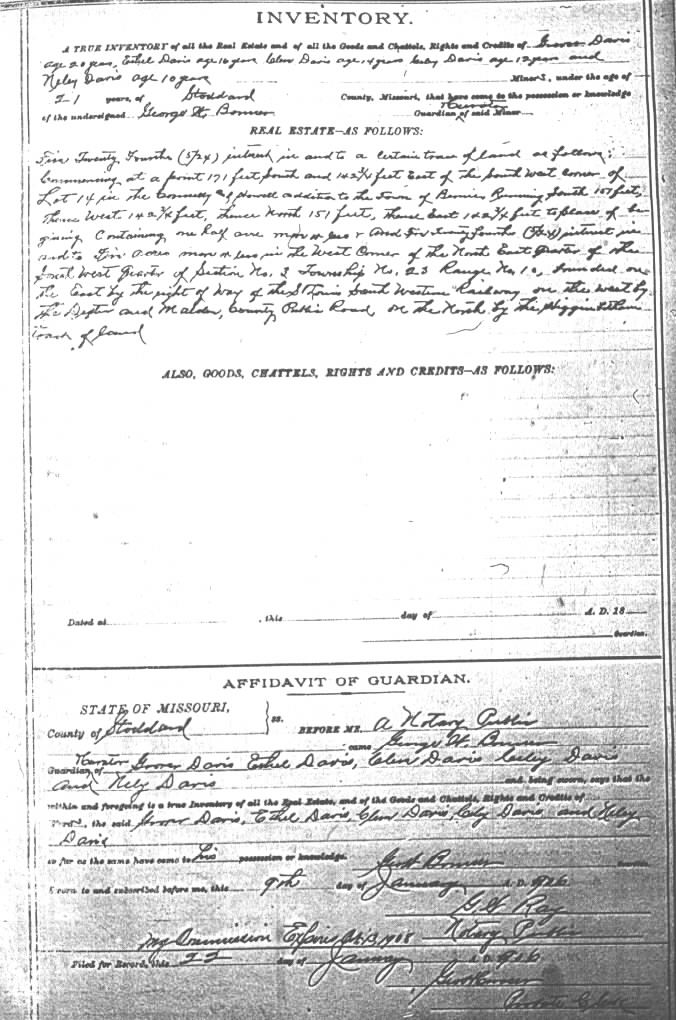 INVENTORY.
A TRUE INVENTORY of all the Real Estate and of all the Goods and Chattels, Rights and Credits of Grover Davis
age 20 years, Ethel Davis age 16 years Clen Davis age 14 years Davis age 12 years and
Neley Davis age 10 years Minors, under the age of
21 years, of Stoddard County, Missouri, that have come to the possession or knowledge
of the undersigned George W. Bonner Guardian of said Minor
REAL ESTATE—AS FOLLOWS:
Five Twenty Fourths (5/24) interest in and to a certain trac of land as follows;
Commencing at a point 171 feet South and 142 feet East of the South West corner of
Lot 14 in the Connelly & Howell addition to the Town of Bernie Running South 151 feet,
Thence West 142 feet, thence North 151 feet, thence East 142 feet to place of be
gining Containing one half acre more or less & And Five Twenty Fourths (5/24) interest in
and to Five acres more or less in the West Corner of the North East quarter of the
West Quarter of Section No. 2 Township No. 23 Range No. 10, bounded on
the East by the right of Way of the St Louis South Western Railway on the west by
the Dexter and Malden, County Public Road on the North by the
tract of land
ALSO, GOODS, CHATTELS, RIGHTS AND CREDITS—AS FOLLOWS:
Dated at , this day of A. D. 18
Guardian.
AFFIDAVIT OF GUARDIAN.
STATE OF MISSOURI,
County of Stoddard ss. BEFORE ME, A Notary Public
came George W. Bonner
Guardian of Grover Davis Ethel Davis, Clen Davis Davis
and Nely Davis and, being sworn, says that the
within and foregoing is a true Inventory of all the Real Estate, and of the Goods and Chattels, Rights and Credits of
the said Grover Davis, Ethel Davis, Clen Davis, Davis and Neley
Davis
so far as the same have come to his possession or knowledge. Geo W Bonner
Sworn to and subscribed before me, this 9th day of January A. D. 1906
G. W. Ray
My Commission Expires 13, 1908 Notary Public
Filed for Record, this 22 day of January A. D. 1906
Geo W Bonner
Probate Clerk